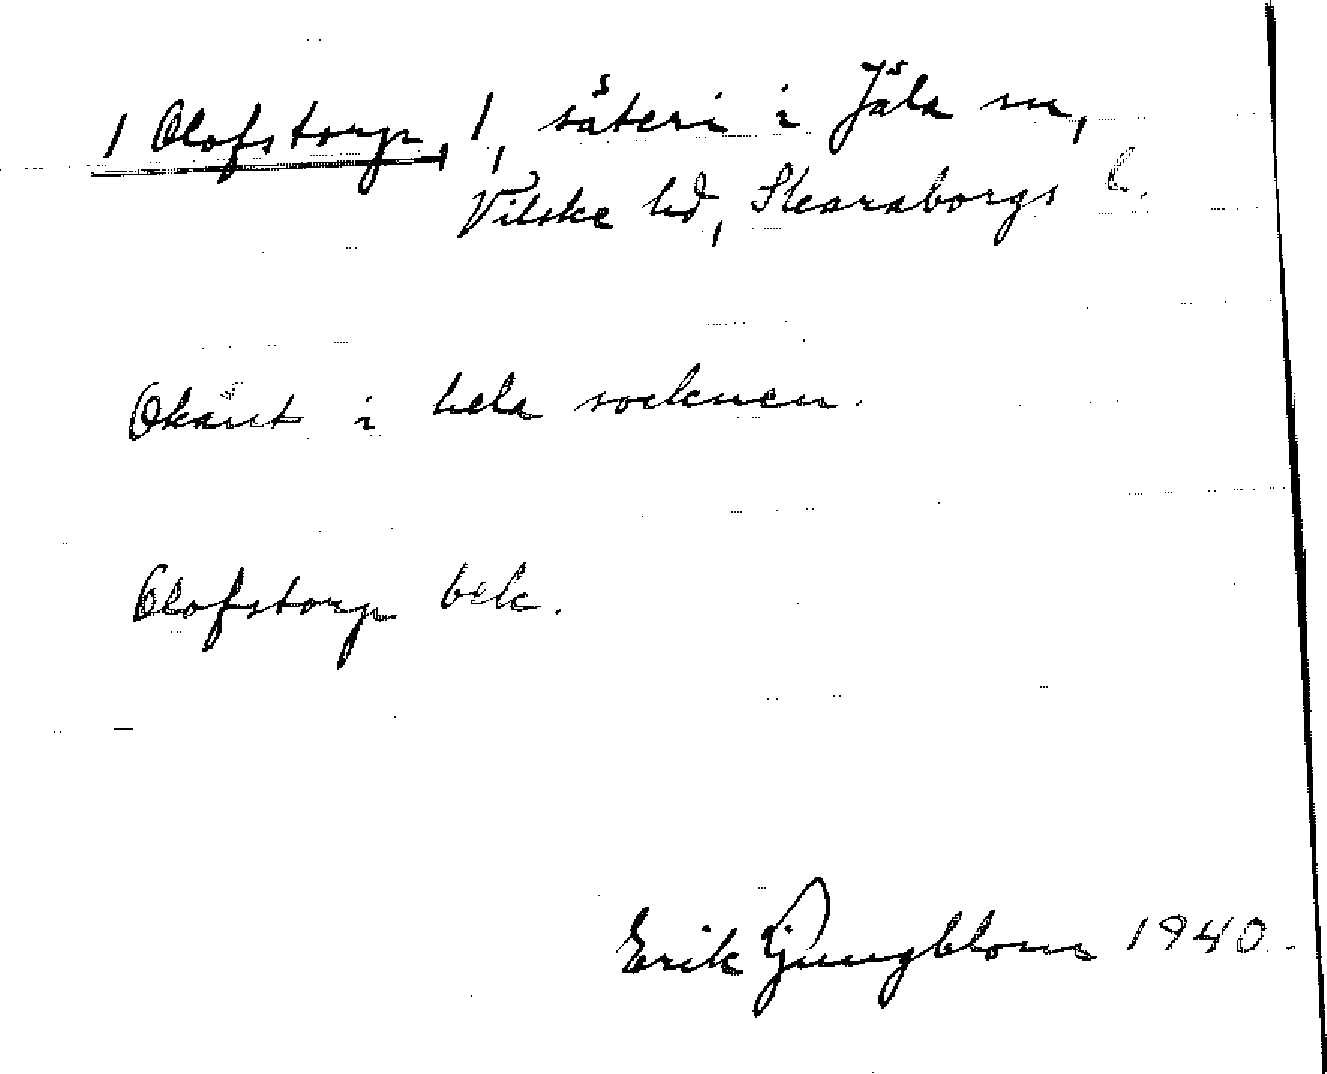 1 Olofstorp, 1, säteri i Jäla sn,
Vilske hd, Skaraborgs l.
Okänt i hela socknen.
Olofstorp bek.
Erik Ljungblom 1940.